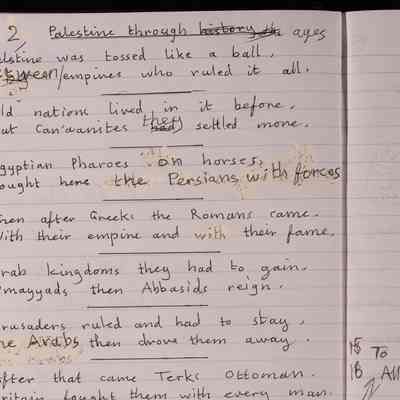 2 Palestine through history the ages
alestine was tossed like a ball,
etween/empires who ruled it all.
ld nations lived in it before,
ut Can'aanites they had settled more.
gyptian Pharoes on horses,
ought here the Persians with forces
hen after Greeks the Romans came.
With their empire and with their fame.
rab kingdoms they had to gain.
mayyads then Abbasids reign.
rusaders ruled and had to stay,
he Arabs then drove them away.
fter that came Terks Ottoman.
ritain fought them with every man.
15 To
16 All